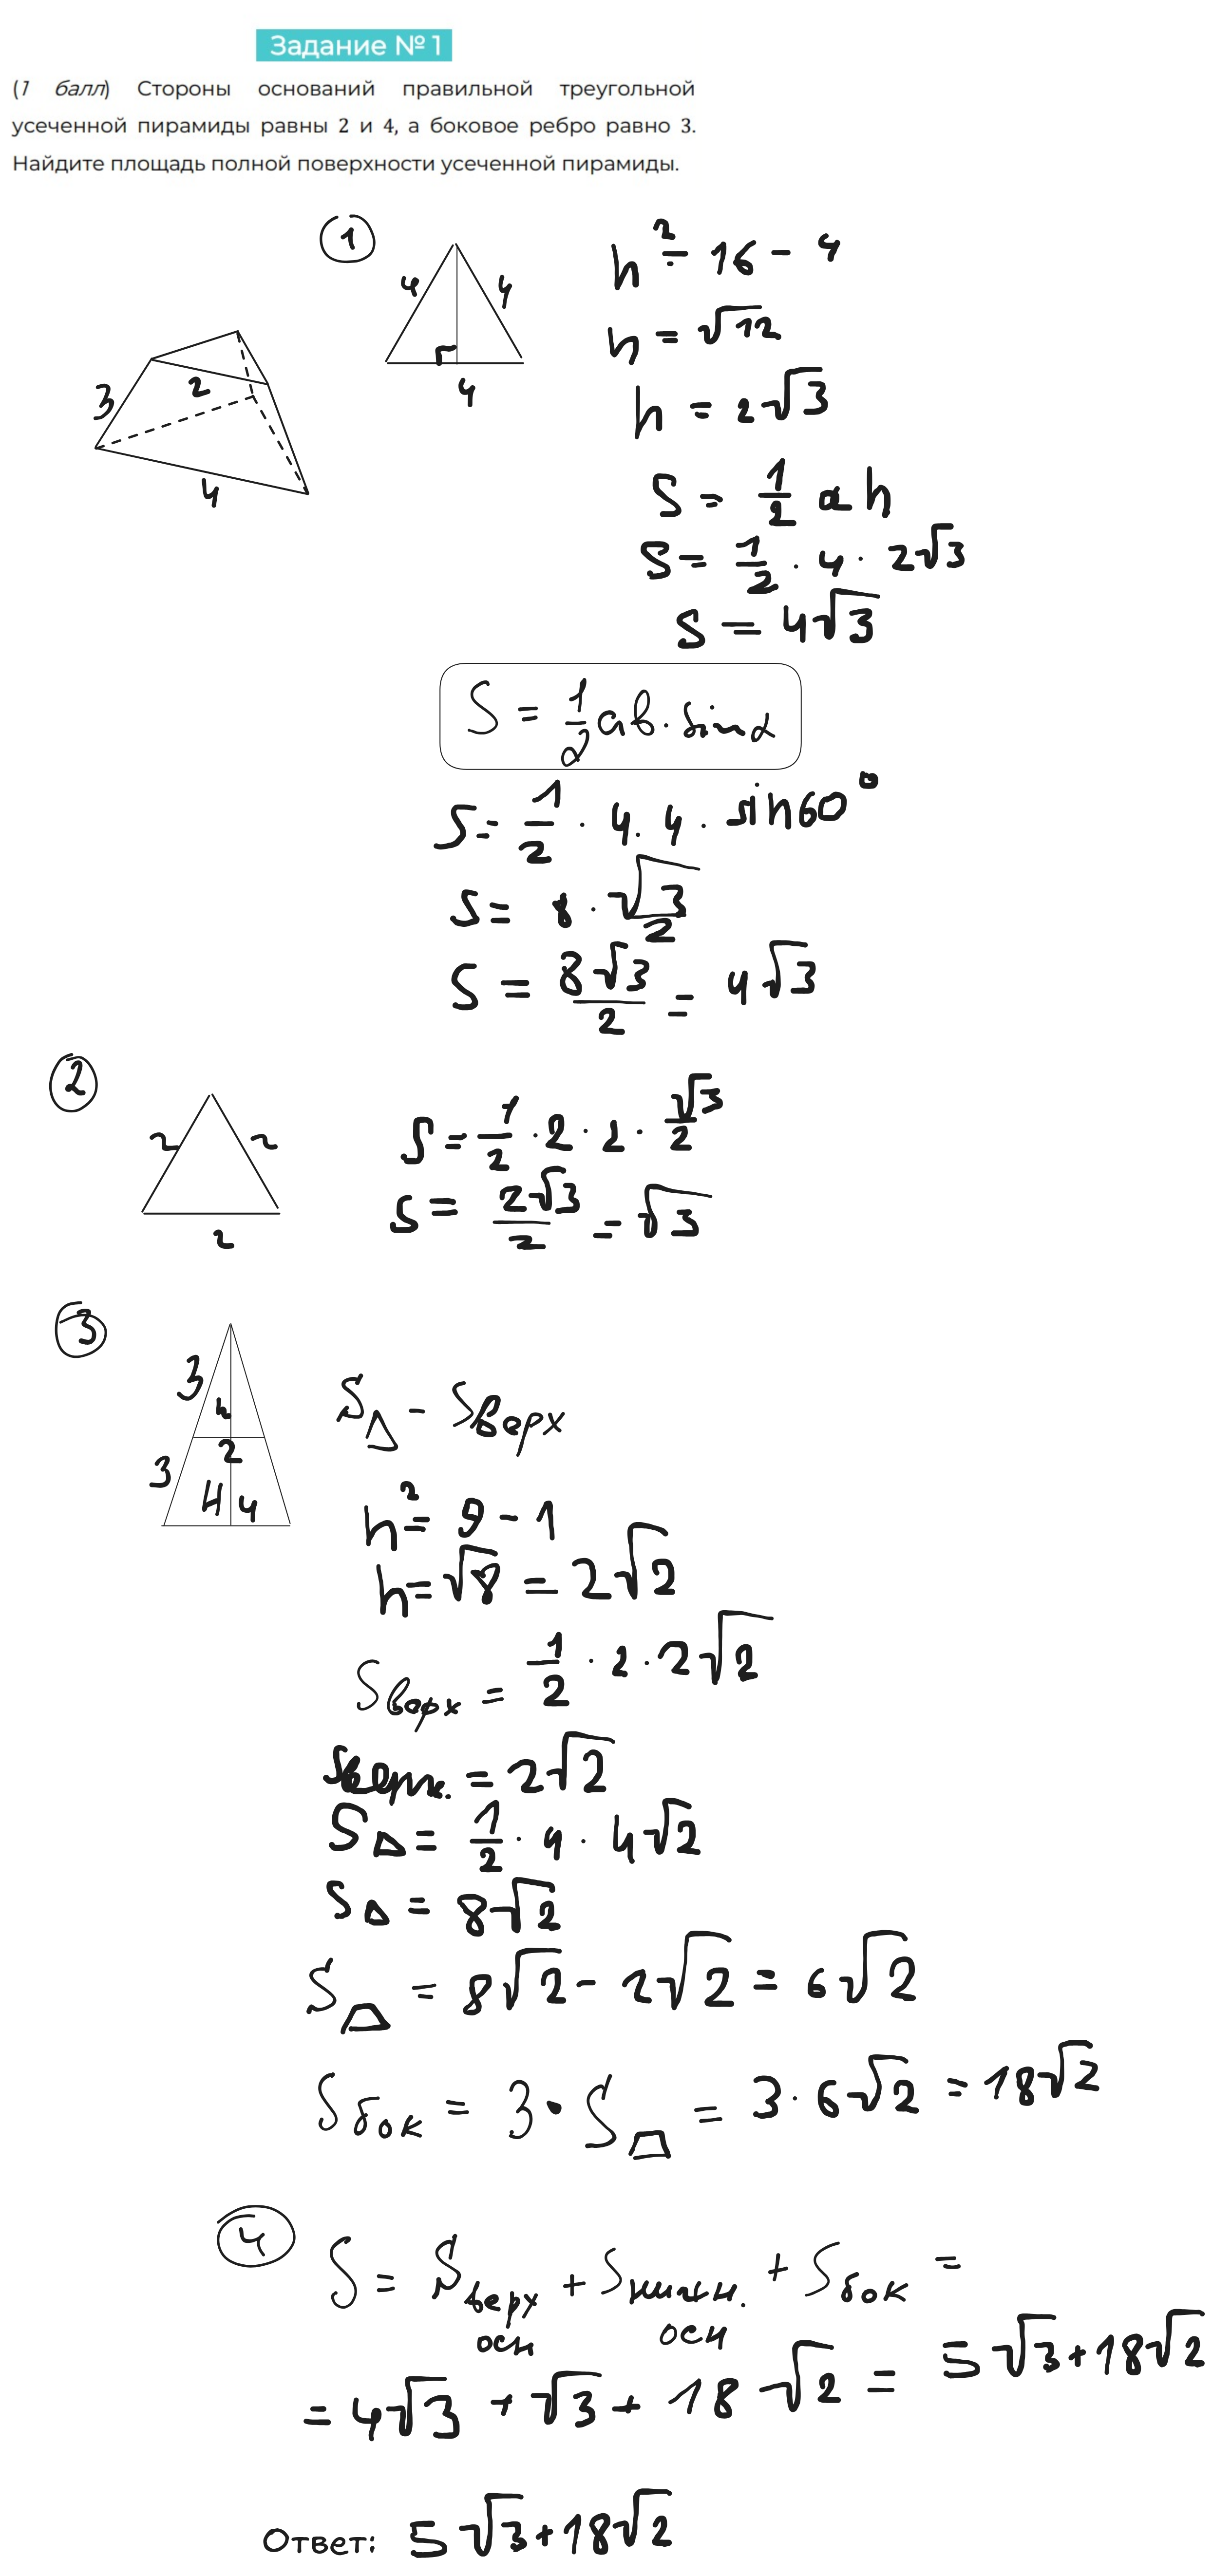 Задание № 1
(1 балл) Стороны оснований правильной треугольной
усеченной пирамиды равны 2 и 4, а боковое ребро равно 3.
Найдите площадь полной поверхности усеченной пирамиды.
1
4 4
4
3 2
4
h² = 16 - 4
h = √12
h = 2√3
S = 1/2 a h
S = 1/2 · 4 · 2√3
S = 4√3
S = 1/2 ab · sin α
S = 1/2 · 4 · 4 · sin60°
S = 8 · √3/2
S = 8√3/2 = 4√3
2
2 2
2
S = 1/2 · 2 · 2 · √3/2
S = 2√3/2 = √3
3
3 h
2
3 H 4
S△ - Sверх
h² = 9 - 1
h = √8 = 2√2
Sверх = 1/2 · 2 · 2√2
Sверх. = 2√2
S△ = 1/2 · 4 · 4√2
S△ = 8√2
S⏢ = 8√2 - 2√2 = 6√2
Sбок = 3 · S⏢ = 3 · 6√2 = 18√2
4
S = Sверх осн + Sнижн. осн + Sбок =
= 4√3 + √3 + 18√2 = 5√3 + 18√2
Ответ: 5√3 + 18√2